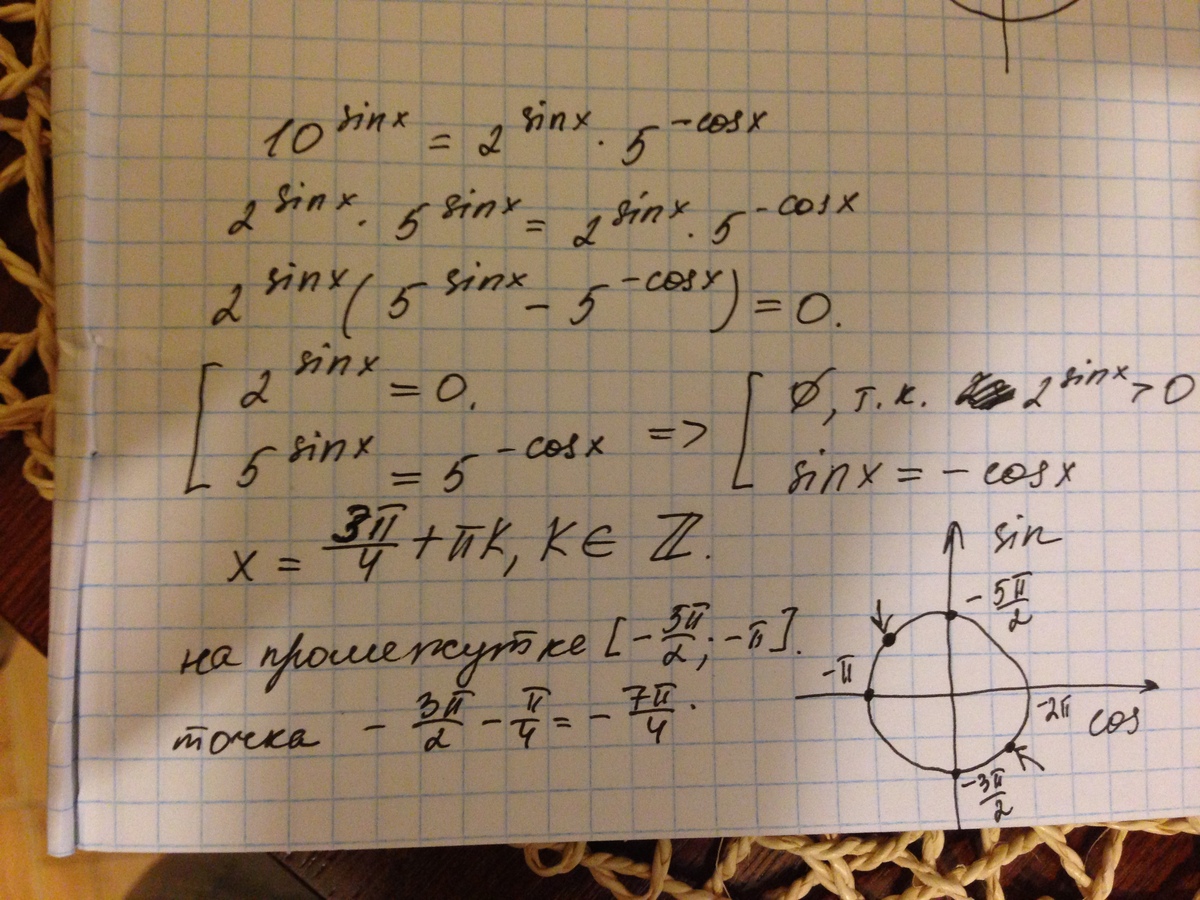 10^{sinx} = 2^{sinx} · 5^{-cosx}
2^{sinx} · 5^{sinx} = 2^{sinx} · 5^{-cosx}
2^{sinx} ( 5^{sinx} - 5^{-cosx} ) = 0.
[ 2^{sinx} = 0.
5^{sinx} = 5^{-cosx}
=> [ ∅, т.к. 2^{sinx} > 0
sinx = - cosx
x = 3π/4 + πK, K ∈ ℤ.
на промежутке [-5π/2; -π].
точка - 3π/2 - π/4 = - 7π/4.
sin
- 5π/2
-π
-2π
cos
- 3π/2